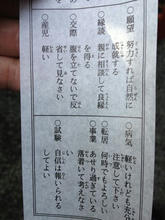 ○願望 努力すれば自然に
成就する
○縁談 親に相談して良縁
を得る
○交際 腹を立てないで反
省して見なさい
○産児 軽い
○病気 軽いけれども充分
注意して下さい
○転居 何時でもよろしい
○事業 あせり過ぎている
落着いて考えなさい
○試験 自信は報いられる
してよい